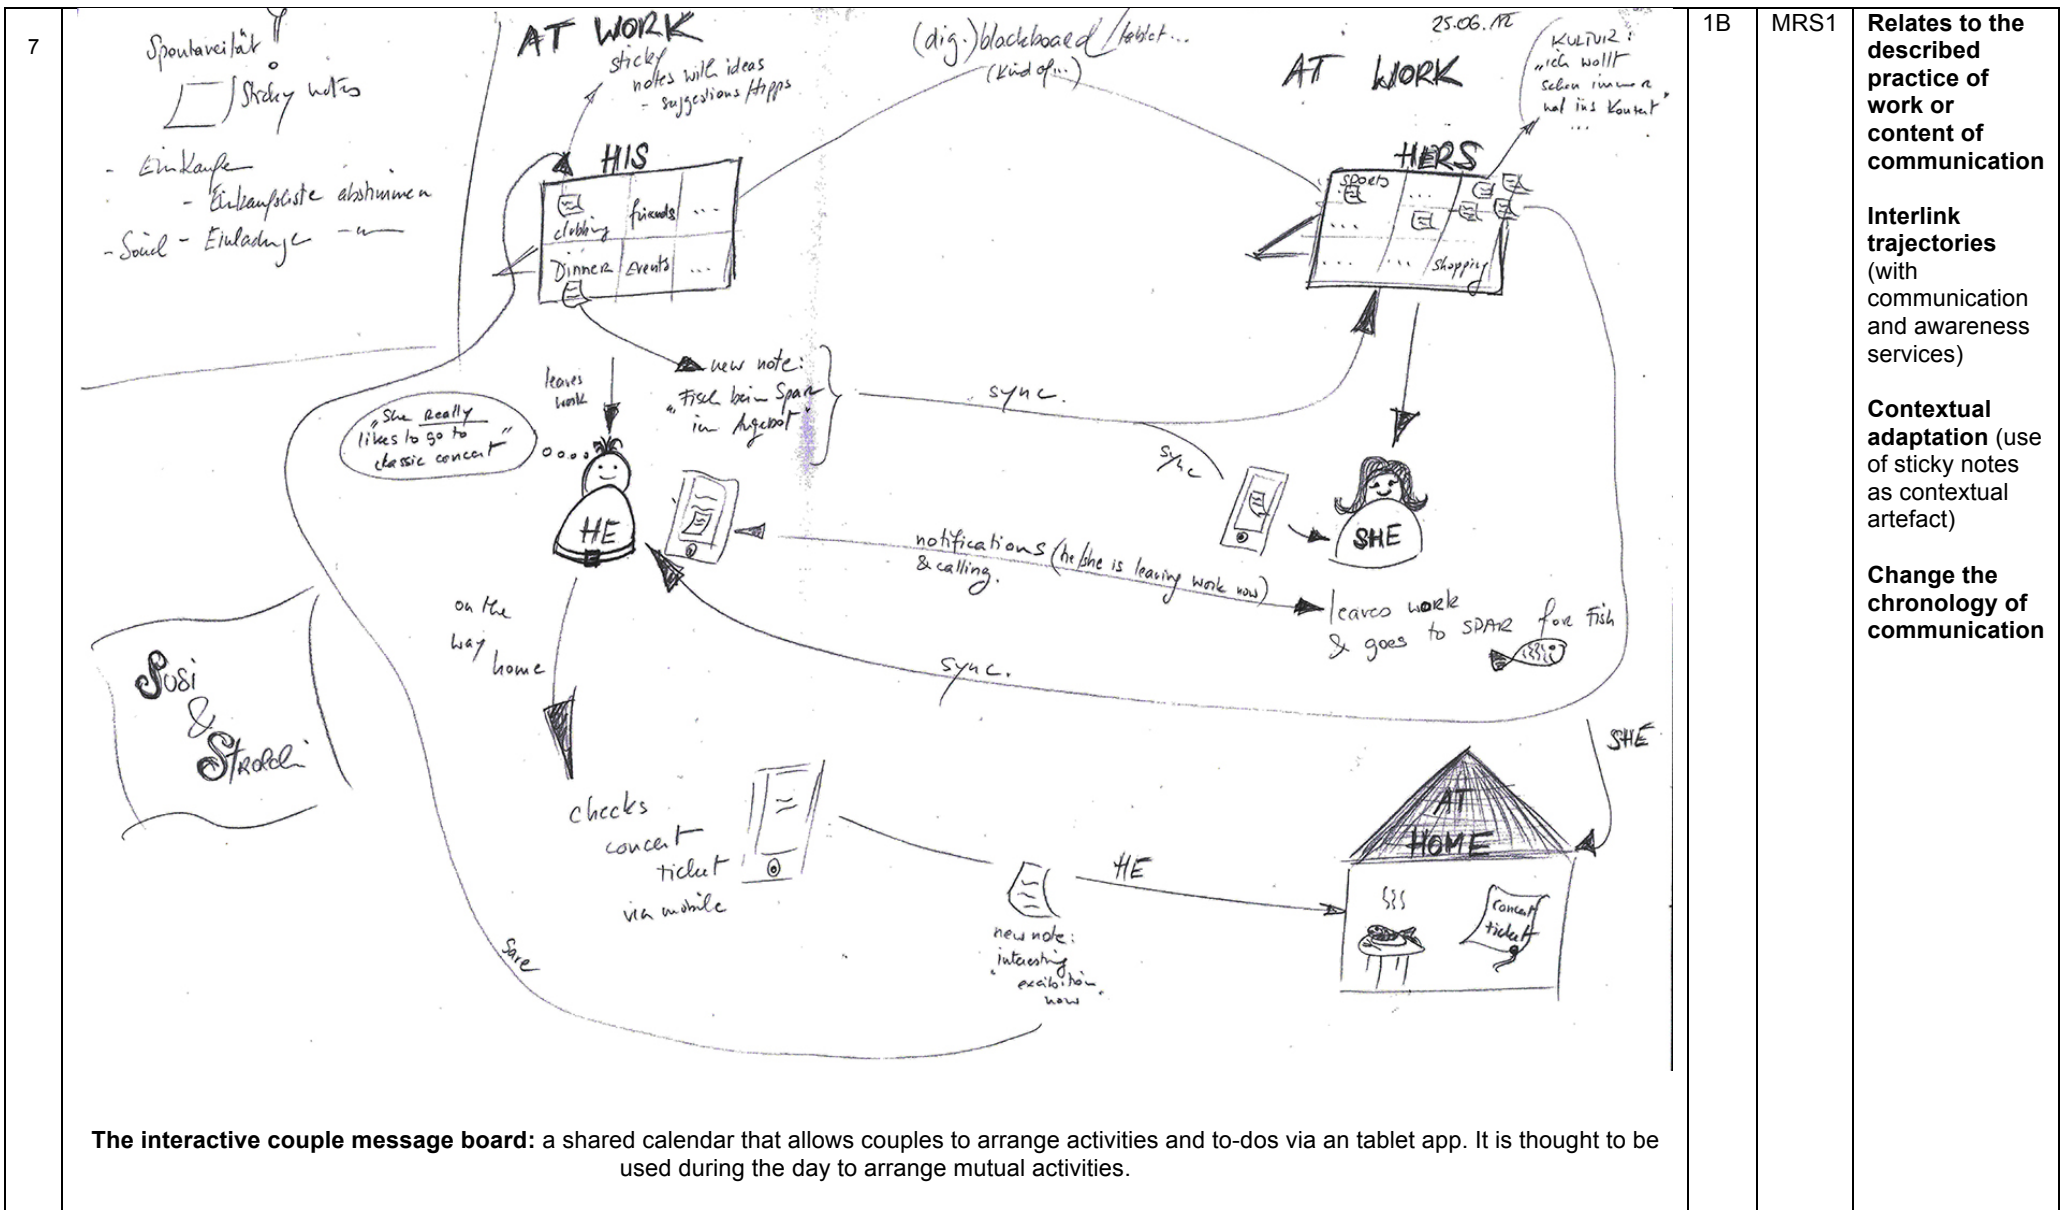 7
Spontaneität
Sticky notes
- Einkaufen
- Einkaufsliste abstimmen
- Einladunge
AT WORK
sticky
notes with ideas
- suggestions/tipps
(dig.)blackboard/tablet...
(kind of...)
25.06.12
AT WORK
KULTUR:
„ich wollt
schon immer
mal ins Konzert"
...
HIS
clubbing
friends
...
Dinner
Events
...
HERS
sports
...
...
...
...
shopping
leaves
work
new note:
„Fisch beim Spar
im Angebot"
sync.
sync
„She really
likes to go to
classic concert"
HE
SHE
notifications (he/she is leaving work now)
& calling.
leaves work
& goes to SPAR for Fish
on the
way
home
sync.
Susi
&
Strolchi
checks
concert
ticket
via mobile
HE
SHE
AT
HOME
concert
ticket
new note:
„interesting
now"
The interactive couple message board: a shared calendar that allows couples to arrange activities and to-dos via an tablet app. It is thought to be
used during the day to arrange mutual activities.
1B
MRS1
Relates to the
described
practice of
work or
content of
communication
Interlink
trajectories
(with
communication
and awareness
services)
Contextual
adaptation (use
of sticky notes
as contextual
artefact)
Change the
chronology of
communication